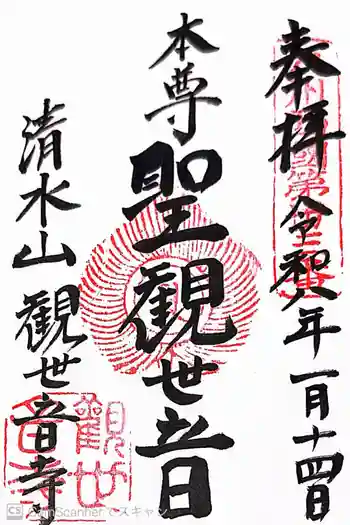 奉拝 令和八年一月十四日
本尊
聖観世音
清水山 観世音寺
観世
音寺
CS CamScanner でスキャン